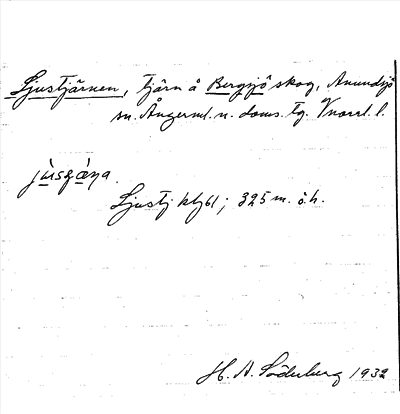 Ljustjärnen, tjärn å Bergsjö skog, Anundsjö
sn. Ångerml. n. doms. tg. Vnorrl. l.
Ljustj ktj61; 325 m. ö. h.
H. A. Söderberg 1932